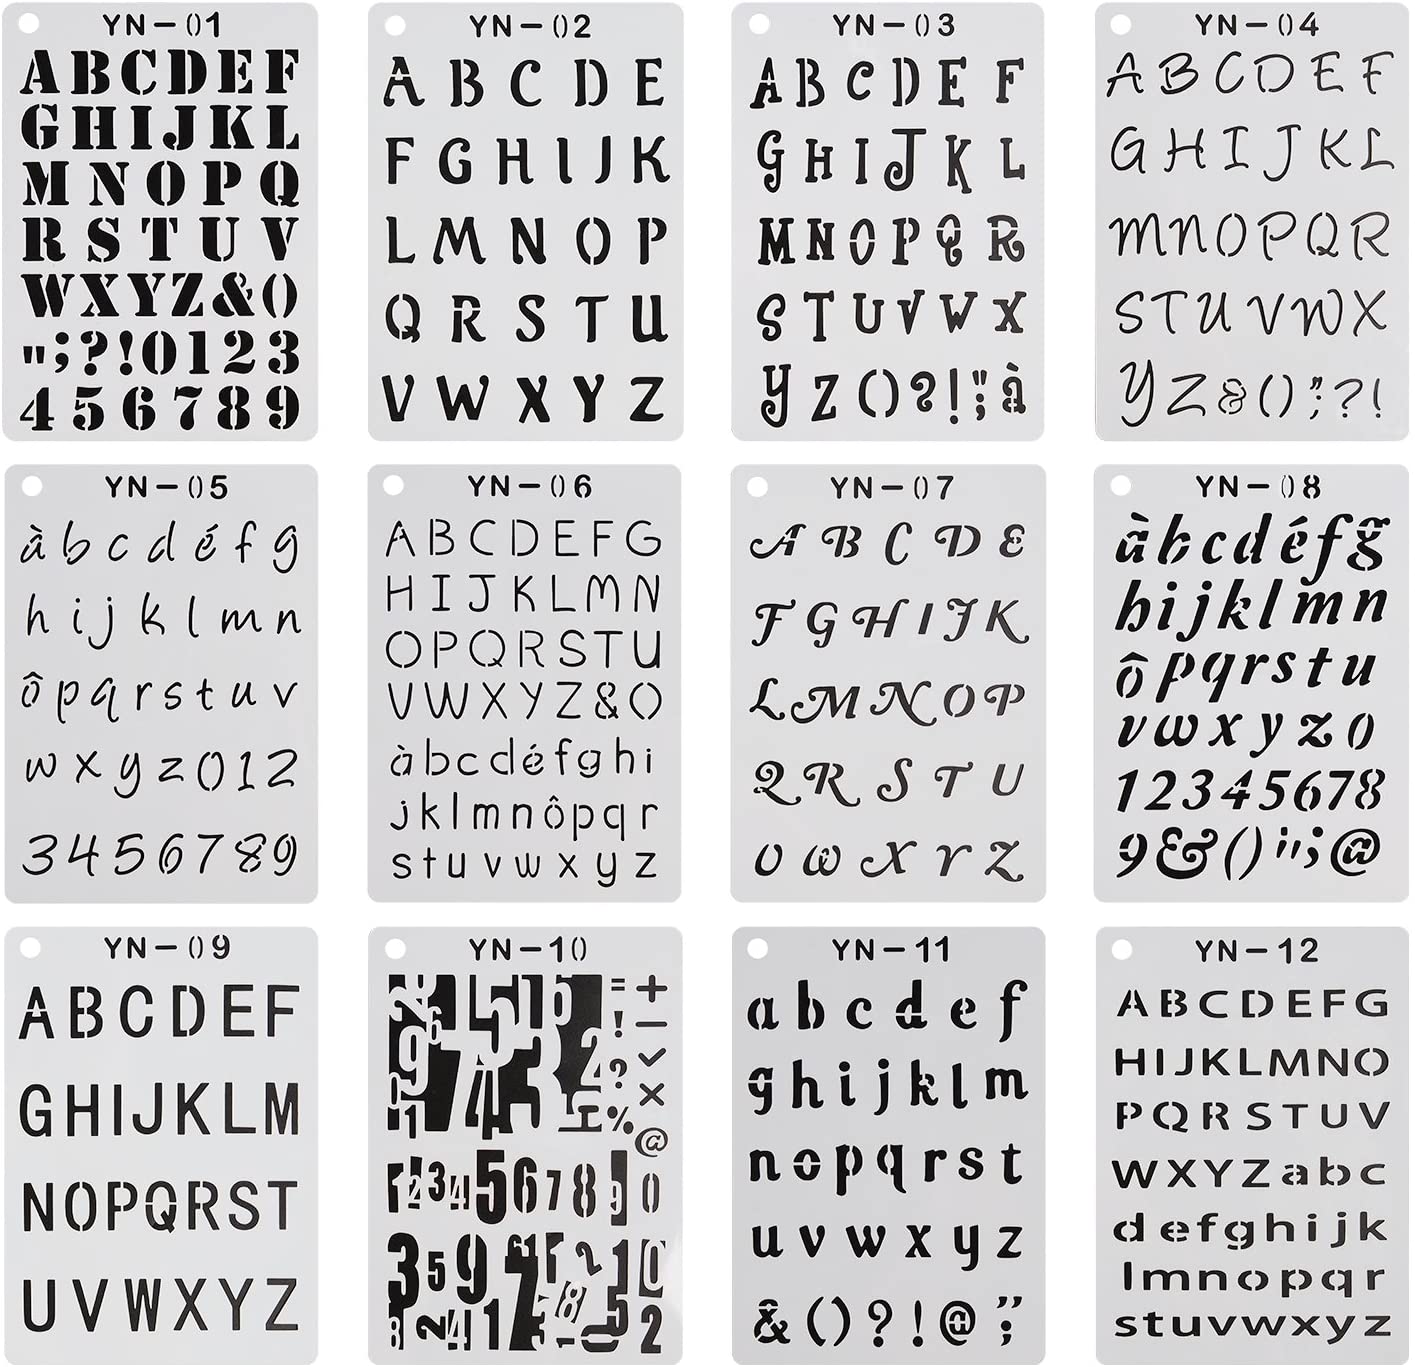 YN-01
ABCDEF
GHIJKL
MNOPQ
RSTUV
WXYZ&()
";?!0123
456789
YN-02
ABCDE
FGHIJK
LMNOP
QRSTU
VWXYZ
YN-03
ABCDEF
GHIJKL
MNOPQR
STUVWX
YZ()?!";à
YN-04
ABCDEF
GHIJKL
MNOPQR
STUVWX
YZ&()";?!
YN-05
àbcdéfg
hijklmn
ôpqrstuv
wxyz012
3456789
YN-06
ABCDEFG
HIJKLMN
OPQRSTU
VWXYZ&()
àbcdéfghi
jklmnôpqr
stuvwxyz
YN-07
ABCDE
FGHIJK
LMNOP
QRSTU
VWXYZ
YN-08
àbcdéfg
hijklmn
ôpqrstu
vwxyz0
12345678
9&()";@
YN-09
ABCDEF
GHIJKLM
NOPQRST
UVWXYZ
YN-10
YN-11
abcdef
ghijklm
nopqrst
uvwxyz
&()?!@";
YN-12
ABCDEFG
HIJKLMNO
PQRSTUV
WXYZabc
defghijk
lmnopqr
stuvwxyz